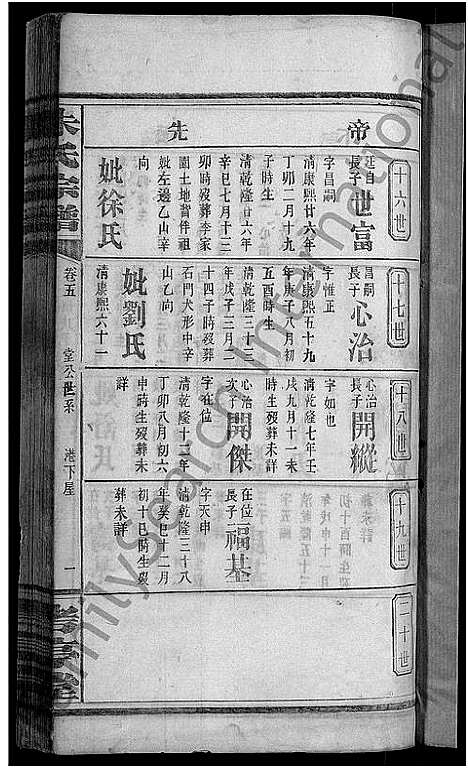 帝先
十六世
廷自長子世富
字昌嗣
清康熙廿六年
丁卯二月十九
子時生
清乾隆廿六年
辛巳七月十三
卯時歿葬李家
園土地背仵祖
妣左邊乙山辛
向
妣徐氏
十七世
昌嗣長子心治
字惟正
清康熙五十九
年庚子八月初
五酉時生
清乾隆三十三
年戊子二月二
十四子時歿葬
石門犬形中辛
山乙向
妣劉氏
清康熙六十一
十八世
心治長子開縱
字如也
清乾隆七年壬
戌九月十一未
時生歿葬未詳
心治次子開傑
字在位
清乾隆十二年
丁卯八月初六
申時生歿葬未
詳
十九世
在位長子福基
字天申
清乾隆三十八
年癸巳十二月
初十巳時生歿
葬未詳
二十世
朱氏宗譜
卷五
堂公世系
港下屋
一